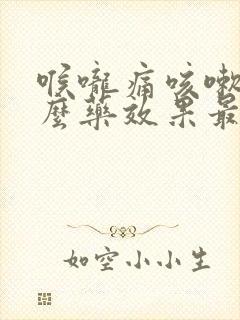 喉嚨痛咳嗽
麼藥效果最
如空小小生